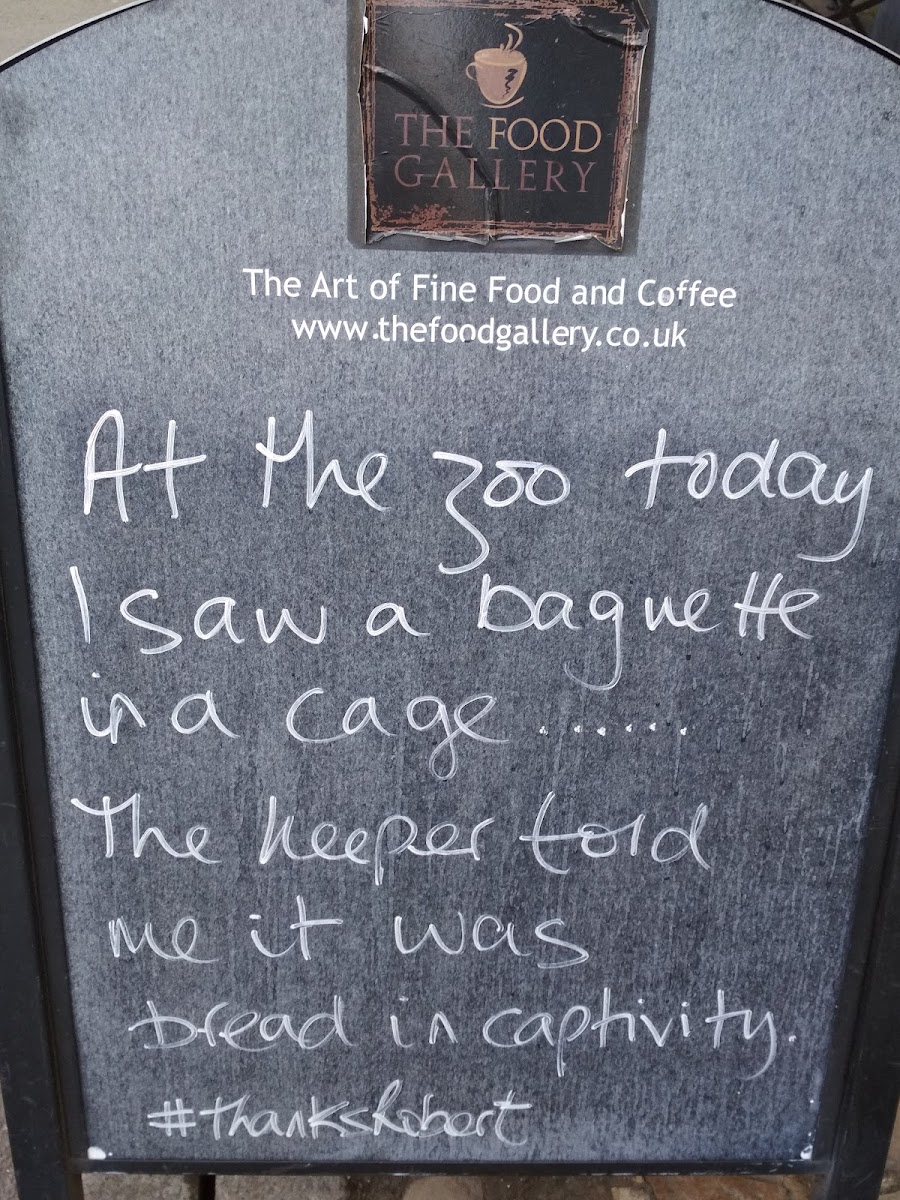 THE FOOD
GALLERY
The Art of Fine Food and Coffee
www.thefoodgallery.co.uk
At the zoo today
I saw a baguette
in a cage .......
The keeper told
me it was
bread in captivity.
#thanksRobert